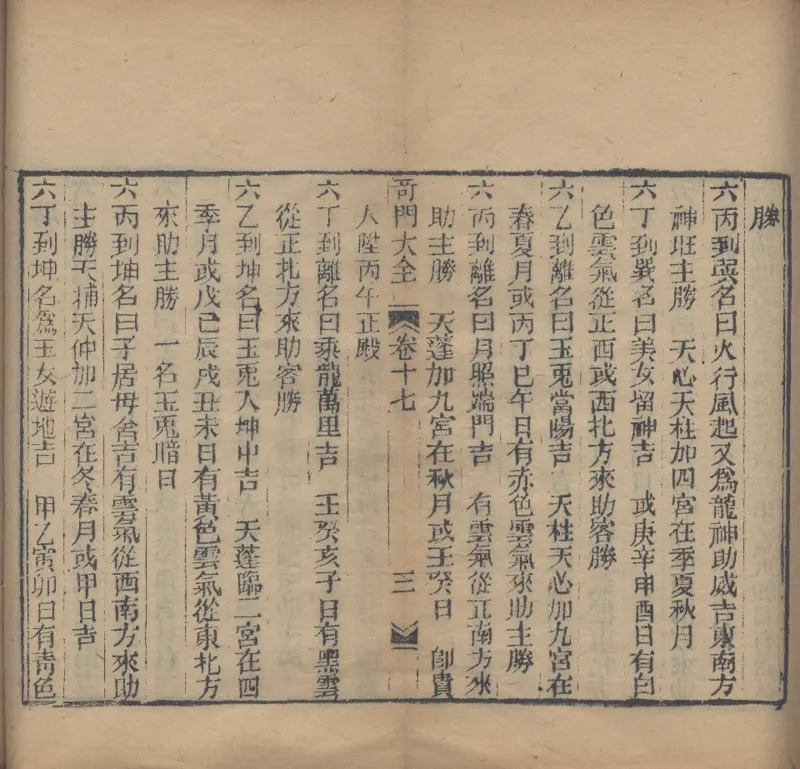 勝
六丙到巽名曰火行風起又為龍神助威吉東南方
神旺主勝　天心天柱加四宮在季夏秋月
六丁到巽名曰美女留神吉　或庚辛申酉日有白
色雲氣從正西或西北方來助客勝
六乙到離名曰玉兎當陽吉　天柱天心加九宮在
春夏月或丙丁巳午日有赤色雲氣來助主勝
六丙到離名曰月照端門吉　有雲氣從正南方來
助主勝　天蓬加九宮在秋月或壬癸日　卽貴
人陞丙午正殿
奇門大全　卷十七　三
六丁到離名曰乘龍萬里吉　壬癸亥子日有黑雲
從正北方來助客勝
六乙到坤名曰玉兎入坤中吉　天蓬臨二宮在四
季月或戊己辰戌丑未日有黃色雲氣從東北方
來助主勝　一名玉兎暗日
六丙到坤名曰子居母舍吉有雲氣從西南方來助
主勝天輔天仲加二宮在冬春月或甲日吉
六丁到坤名爲玉女遊地吉　甲乙寅卯日有靑色